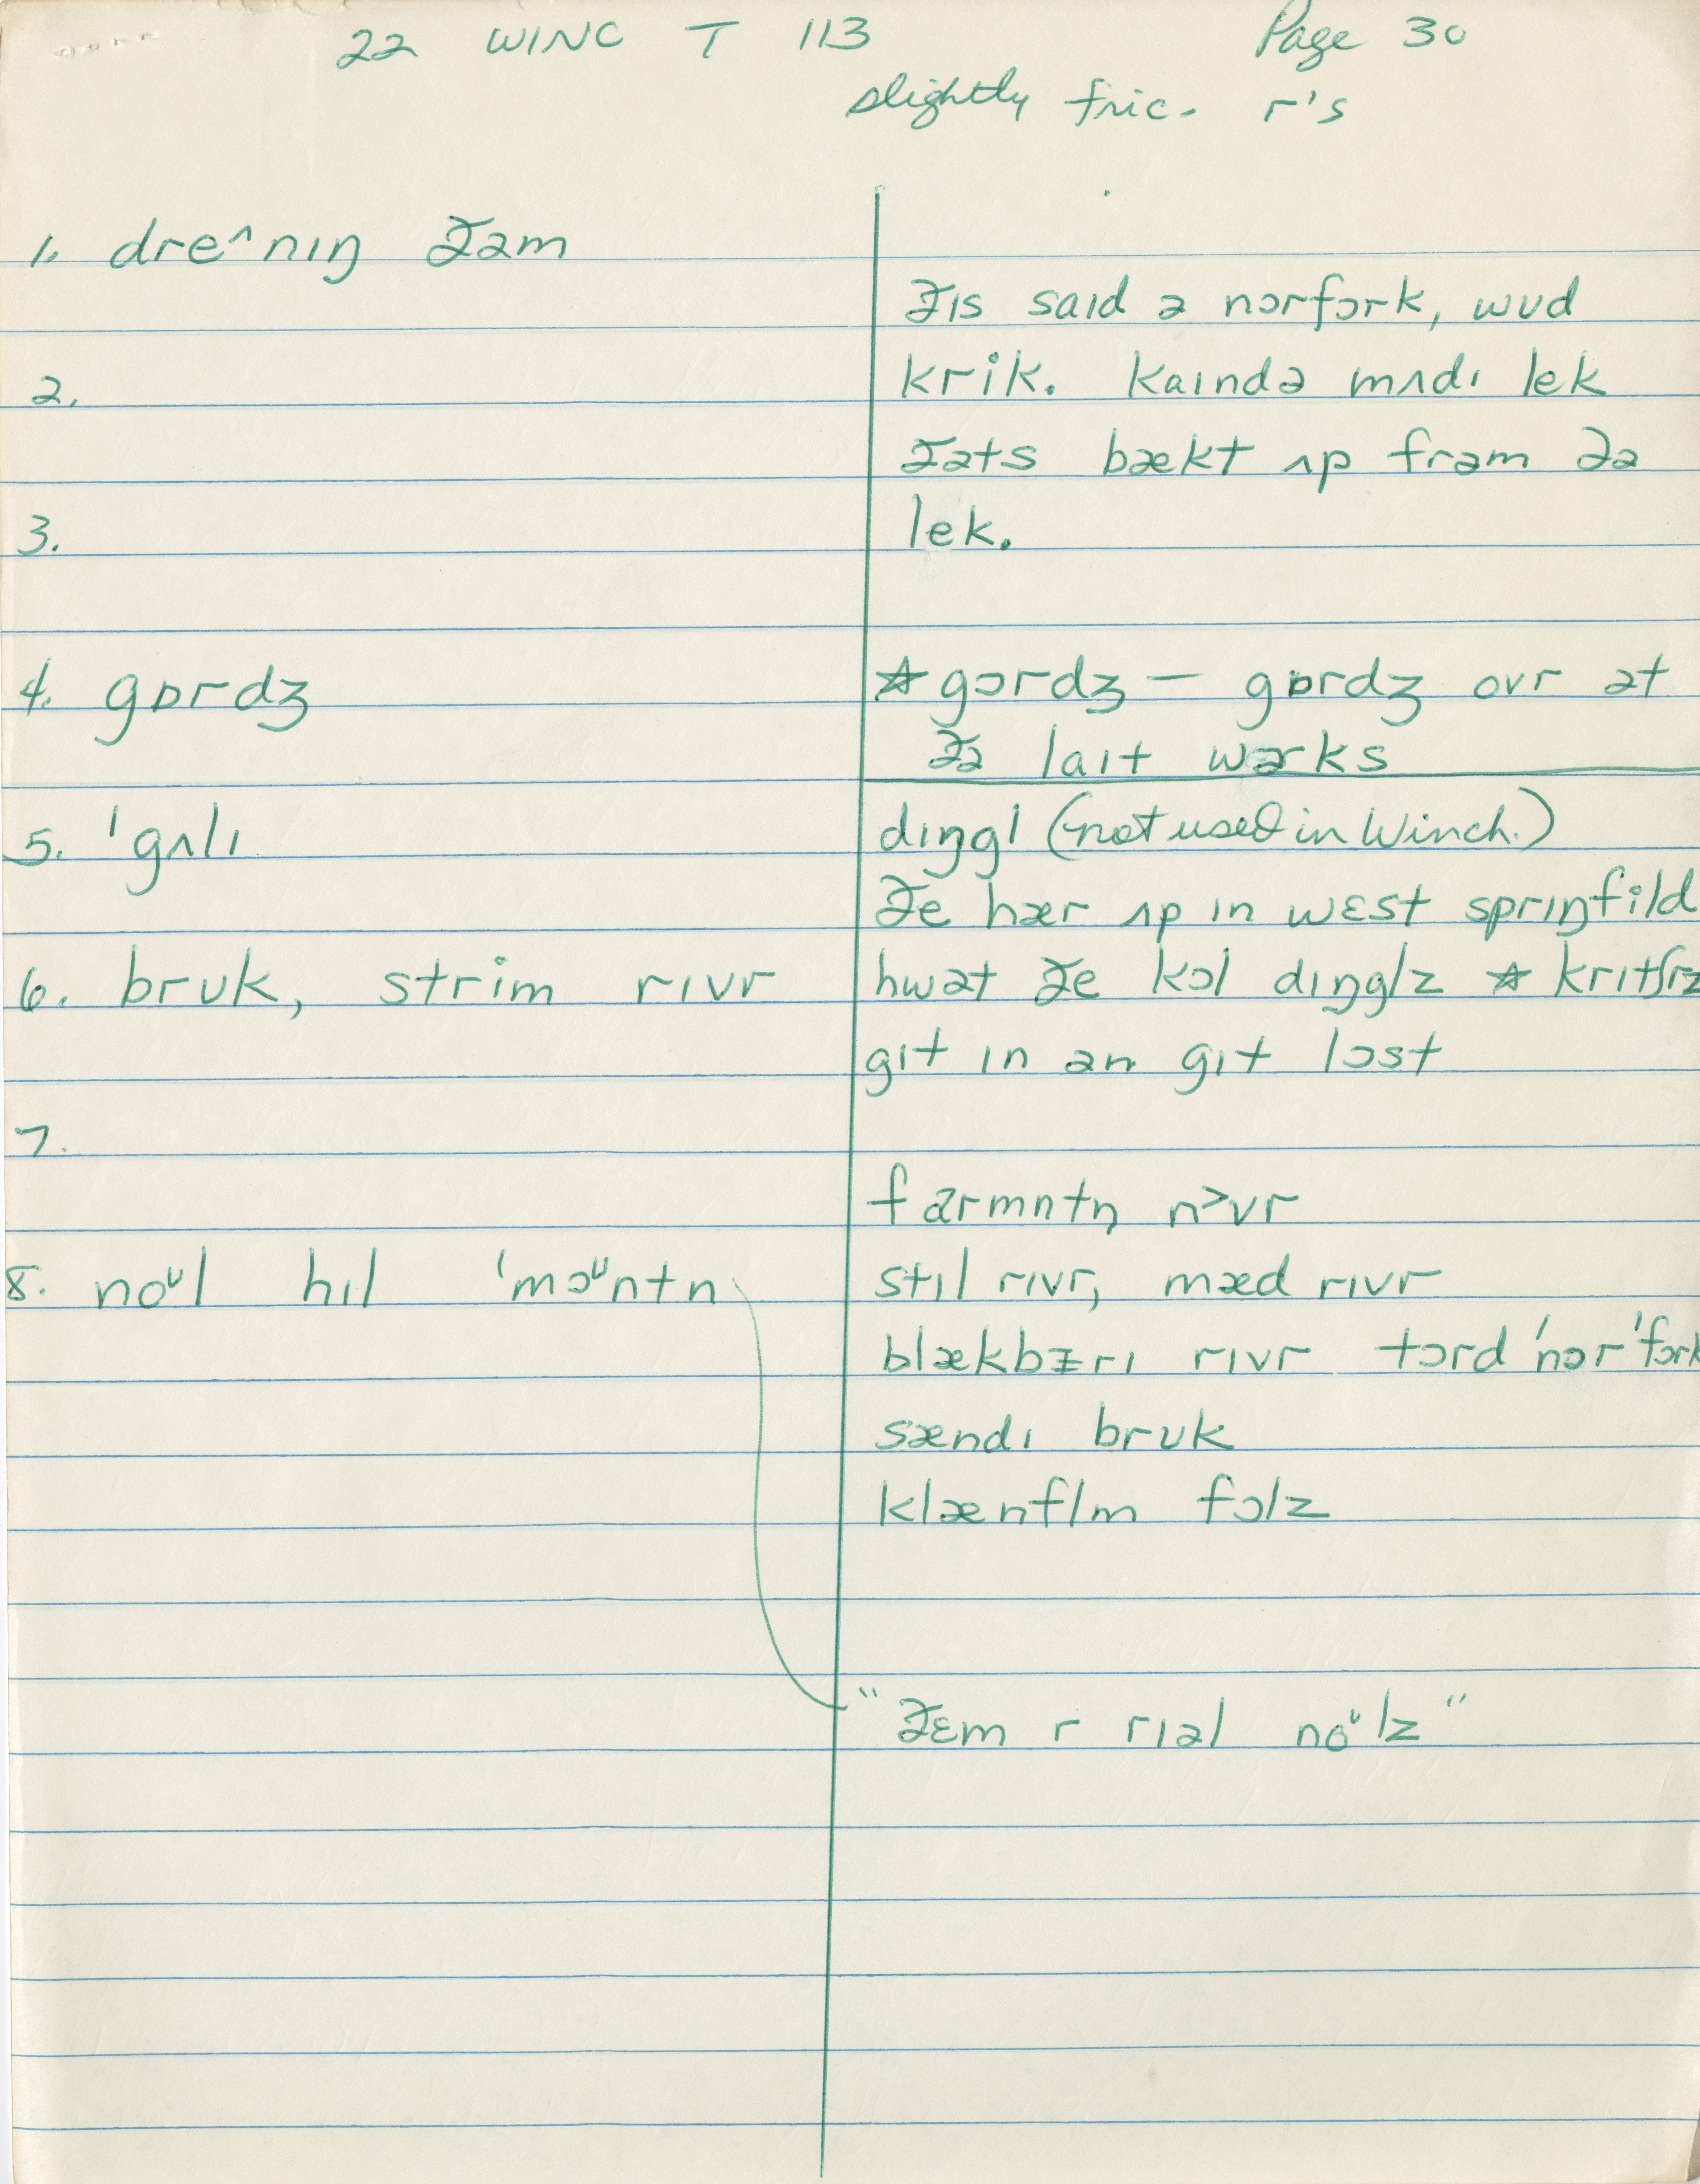 22 WINC T 113 Page 30
slightly fric. r's
1. dre^nɪŋ ðəm
ðɪs saɪd ə nɔrfɔrk, wʊd
2. krik. kaɪndə mʌdɪ lek
ðəts bækt ʌp frəm ðə
3. lek.
4. gɒrdʒ ☆gɔrdʒ — gɒrdʒ ovr ət
ðə laɪt wərks
5. ˈgʌlɪ dɪŋgl (not used in Winch.)
ðe hær ʌp ɪn wɛst sprɪŋfild
6. brʊk, strim rɪvr hwət ðe kɔl dɪŋglz ☆ krɪtʃrz
gɪt ɪn ən gɪt lɔst
7.
farmntn̩ n>vr
8. noᶷl hɪl ˈməᶷntn stɪl rɪvr, mæd rɪvr
blækbɛrɪ rɪvr tɔrd ˈnɔrˈfɔrk
sændɪ brʊk
klænflm fɔlz
"ðɛm r rɪəl noᶷlz"